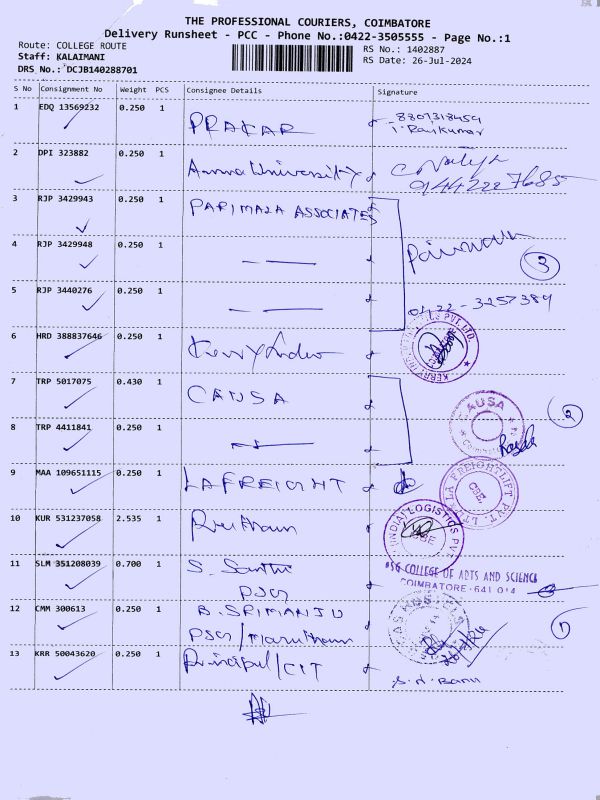 THE PROFESSIONAL COURIERS, COIMBATORE
Delivery Runsheet - PCC - Phone No.:0422-3505555 - Page No.:1
Route: COLLEGE ROUTE
Staff: KALAIMANI
DRS No.: DCJB140288701
RS No.: 1402887
RS Date: 26-Jul-2024
S No Consignment No Weight PCS Consignee Details Signature
1 EDQ 13569232 0.250 1 PRAKAR 8807318459
T. Rajkumar
2 DPI 323882 0.250 1 Anna University
01442227685
3 RJP 3429943 0.250 1 PARIMALA ASSOCIATES
4 RJP 3429948 0.250 1 — —
3
5 RJP 3440276 0.250 1 — — 0422-3257389
6 HRD 388837646 0.250 1 Kerry Indev
7 TRP 5017075 0.430 1 CAUSA
CAUSA
2
8 TRP 4411841 0.250 1
9 MAA 109651115 0.250 1 LAFREIGHT
LA FREIGHTLIFT PVT. LTD.
CBE.
10 KUR 531237058 2.535 1
INDIA LOGISTICS PVT
11 SLM 351208039 0.700 1 S. Santhi
PSG
PSG COLLEGE OF ARTS AND SCIENCE
COIMBATORE - 641 014
12 CMM 300613 0.250 1 B. SRIMANJU
PSG/
1
13 KRR 50043620 0.250 1 Principal/CIT
S.N. Banu